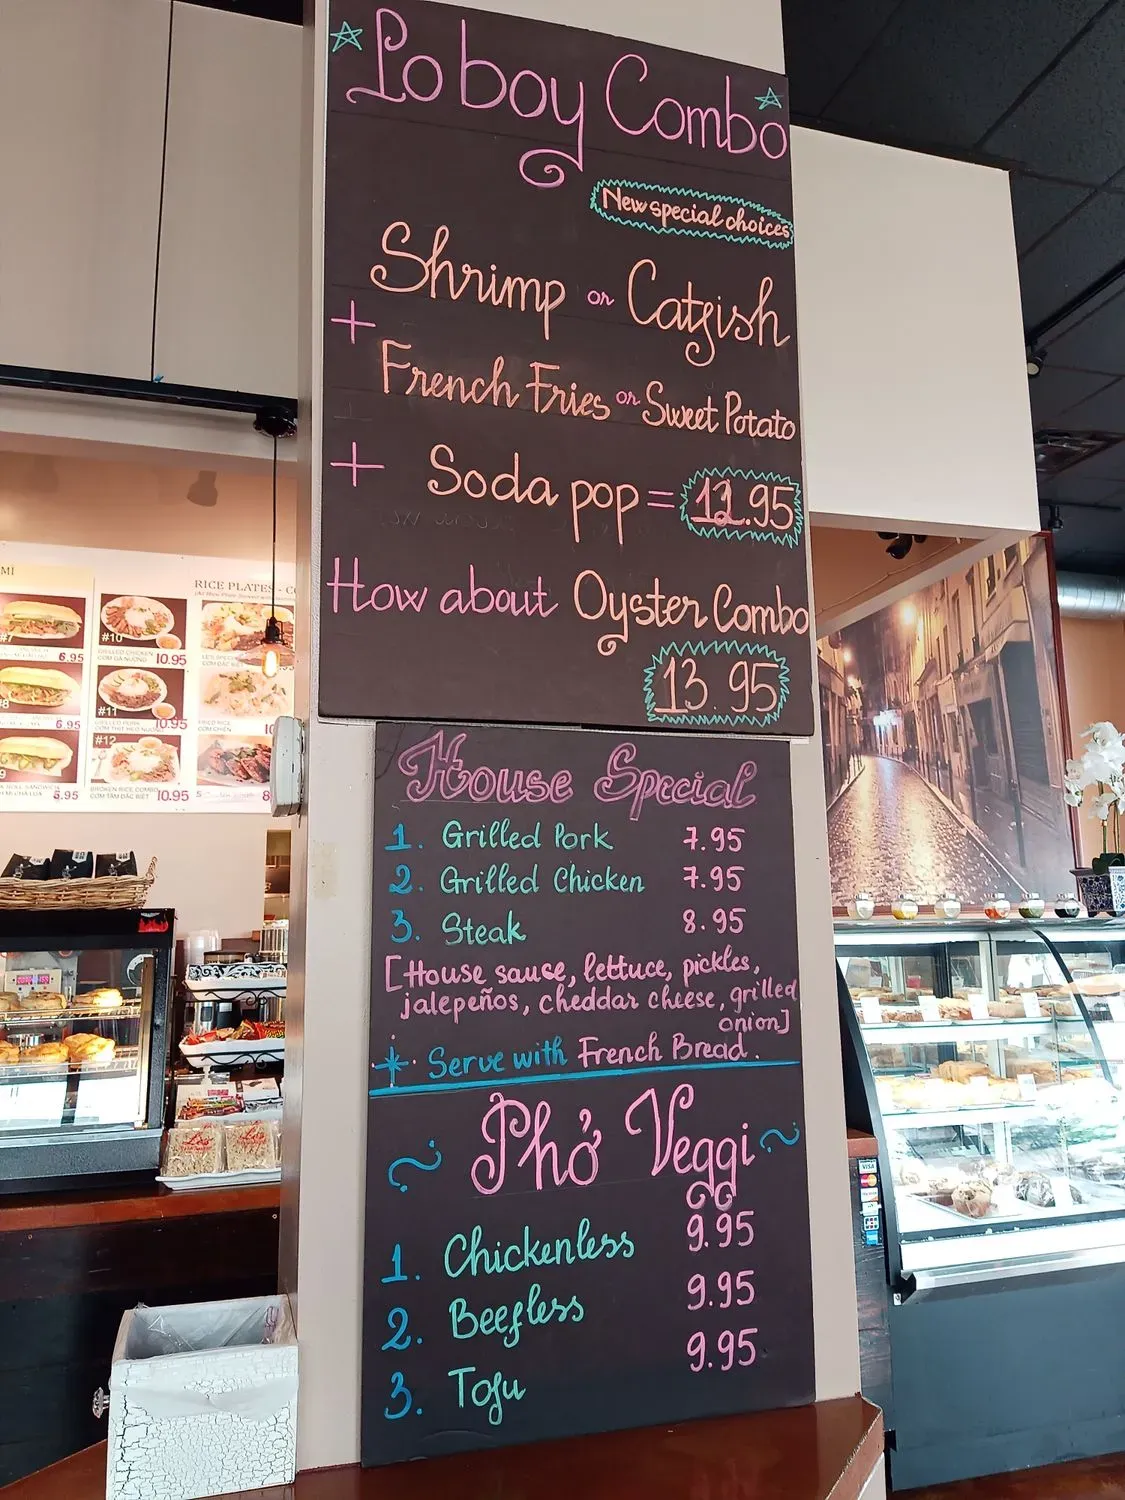 Po boy Combo
New special choices
Shrimp or Catfish
+
French Fries or Sweet Potato
+ Soda pop = 12.95
How about Oyster Combo
13.95
House Special
1. Grilled Pork 7.95
2. Grilled Chicken 7.95
3. Steak 8.95
[House sauce, lettuce, pickles,
jalepeños, cheddar cheese, grilled
onion]
Serve with French Bread.
Phở Veggi
1. Chickenless 9.95
2. Beefless 9.95
3. Tofu 9.95
MÌ
RICE PLATES - C
#7
6.95
#8
6.95
5.95
#10
GRILLED CHICKEN
CƠM GÀ NƯỚNG
10.95
#11
GRILLED PORK
CƠM THỊT HEO NƯỚNG
10.95
#12
BROKEN RICE COMBO
CƠM TẤM ĐẶC BIỆT
10.95
FRIED RICE
CƠM CHIÊN
VISA